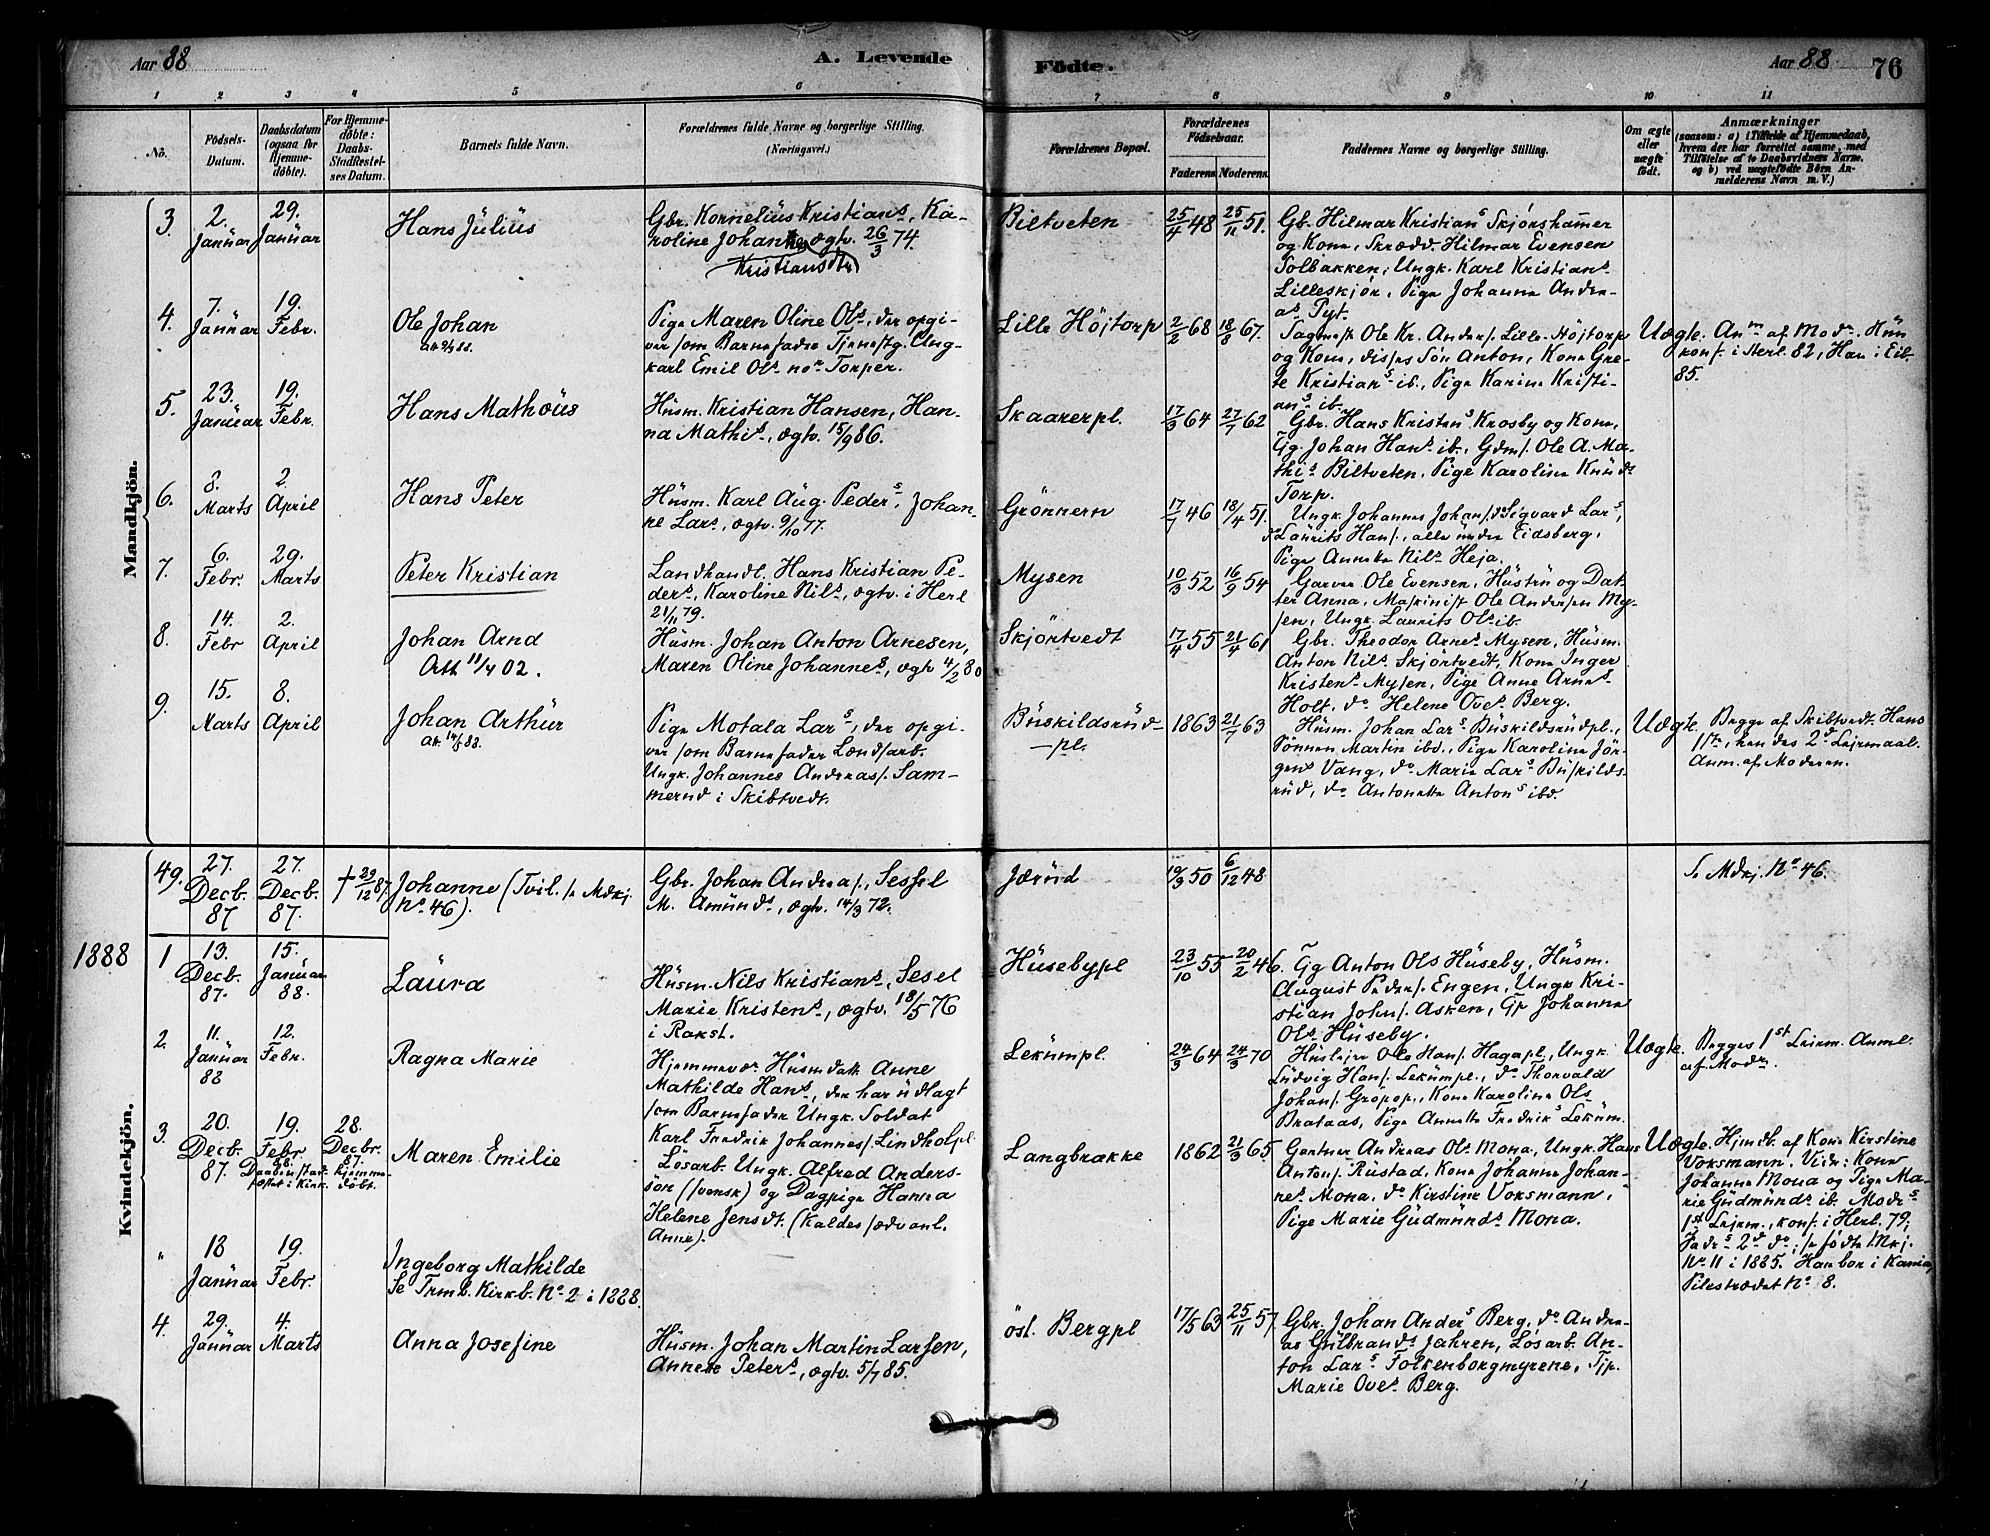 Aar 88
A. Levende
Födte.
Aar 88
76
1 2 3 4 5 6 7 8 9 10 11
No.
Födsels-
Datum.
Daabsdatum
(ogsaa for
Hjemme-
döbte).
For Hjemme-
döbte:
Daabs-
Stadfæstel-
ses Datum.
Barnets fulde Navn.
Forældrenes fulde Navne og borgerlige Stilling.
(Næringsvei.)
Forældrenes Bopæl.
Forældrenes
Födselsaar.
Faderens Moderens
Faddernes Navne og borgerlige Stilling.
Om ægte
eller
uægte
födt.
Anmærkninger
(saasom: a) i Tilfælde af Hjemmedaab,
hvem der har forrettet samme, med
Tilföielse af to Daabsvidners Navne.
og b) ved uægtefödte Börn An-
melderens Navn m. V.)
Mandkjön.
3.
2.
Januar
29.
Januar
Hans Julius
Gbr. Kornelius Kristians, Ka-
roline Johan ægtv. 26/3 74.
Kristiansdtr
Biltveten
25/4 48
25/11 51.
Gb. Hilmar Kristians Skjönshammer
og Kone, Skrædd. Hilmar Evensen
Solbakken, Ungk. Karl Kristians
Lilleskjör, Pige Johanne Andre-
as Pyt.
4.
7.
Januar
19.
Febr.
Ole Johan
Pige Maren Oline Ols, der opgi-
ver som Barnefader Tjenestg. Ung-
karl Emil Ols Torper.
Lille Höjtorp
2/2 68
18/8 67.
Sagmest Ole Kr. Anders. Lille-Höjtorp
og Kone, disses Sön Anton, Kone Gre-
te Kristians ib., Pige Karine Kristi-
ans ib.
Uægte.
Anm af Modr. Hun
konf. i Herl. 82, Han i Eil
85.
5.
23.
Januar
19.
Febr.
Hans Mathæus
Husm. Kristian Hansen, Han-
na Mathis, ægtv. 15/9 86.
Skaarerpl.
17/3 64
27/7 62
Gbr. Hans Kristens Krosby og Kone,
Gg. Johan Hans ib., Gdm. Ole A. Ma-
this Biltveten, Pige Karoline Knuds
Torp.
6.
8.
Marts
2.
April
Hans Peter
Husm. Karl Aug. Peders, Johan-
ne Lars, ægtv. 9/10 77.
Grönnern
17/7 46
18/4 51.
Ungk. Johannes Johans. do Sigvard Lars,
do Laurits Hans., alle nedre Eidsberg,
Pige Annette Nils Heja.
7.
6.
Febr.
29.
Marts
Peter Kristian
Landhandl. Hans Kristian Pe-
ders, Karoline Nils, ægtv. i Herl
21/11 79.
Mysen
10/3 52
16/9 54
Garver Ole Evensen, Hustru og Dat-
ter Anna, Maskinist Ole Andersen My-
sen, Ungk. Laurits Ols ib.
8.
14.
Febr
2.
April
Johan Arnd
Att. 11/4 02.
Husm. Johan Anton Arnesen,
Maren Oline Johannes, ægtv 4/2 80
Skjörtvedt
17/4 55
21/4 61
Gbr. Theodor Arnes Mysen, Husm.
Anton Nils Skjörtvedt, Kone Inger
Kristens Mysen, Pige Anne Arnes
Holt, do Helene Oves Berg.
9.
15.
Marts
8.
April
Johan Arthur
Att. 14/5 88.
Pige Motala Lars, der opgi-
ver som Barnefader Landsarb.
Ungk. Johannes Andreas. Sam-
merud i Skibtvedt.
Buskildsrud-
-pl.
1863
21/7 63
Husm. Johan Lars Buskildsrudpl.,
Sönnen Martin ibd., Pige Karoline Jör-
gens Vang, do Marie Lars Buskilds-
rud, do Antonette Antons ibd.
Uægte.
Begge af Skibtvedt. Hans
1ste, hendes 2d Leiermaal.
Anm. af Moderen.
Kvindekjön.
49.
27.
Decb.
87
27.
Decb.
87.
† 29/12 87.
Johanne (Tvil. se Mdkj.
No 46).
Gbr. Johan Andreas., Sessel
M. Amunds, ægtv. 14/3 72.
Jærud
19/3 50
6/12 48
Se Mdkj. No 46.
1888
1
13.
Decb.
87.
15.
Januar
88.
Laura
Husm. Nils Kristians, Sesel
Marie Kristens, ægtv. 18/5 76
i Rakst.
Husebypl
23/10 55
20/2 46.
Gg Anton Ols Huseby, Husm.
August Peders. Engen, Ungk Kri-
stian Johs. Asken, Gp Johanne
Ols Huseby.
2.
11.
Januar
88
12.
Febr.
Ragna Marie
Hjemmevær Husmdatt Anne
Mathilde Hans, der har udlagt
som Barnefader Ungk. Soldat
Karl Fredrik Johannes. Lindholpl.
Lekumpl.
24/3 64
24/3 70
Huslejer Ole Hans. Hagapl., Ungk
Ludvig Hans. Lekumpl., do Thorvald
Johans. Gropop., Kone Karoline Ols
Brataas, Pige Annette Fredriks Lekum.
Uægte.
Begges 1st Leierm. Anml.
af Modr.
3.
20.
Decb.
87.
19.
Febr.
88.
Daaben stad-
fæstet i Kirk.
28.
Decbr.
87.
Hjemme-
döbt.
Maren Emilie
Lösarb. Ungk. Alfred Anders-
son (svensk) og Dagpige Hanna
Helene Jensdt. (Kaldes sædvanl.
Anne).
Langbrække
1862
21/3 65.
Gartner Andreas Ols Mona, Ungk. Hans
Antons. Rustad, Kone Johanne Johan-
nes Mona, do Kirstine Voksmann,
Pige Marie Gudmunds Mona.
Uægte.
Hjmdb. af Kone Kirstine
Voksmann. Vidr: Kone
Johanne Mona og Pige Ma-
rie Gudmunds ib. Modrs
1st Leierm., konf. i Herl. 79;
Fadrs 2d do; se födte Mkj.
No 11 i 1885. Han bor i Kania,
Pilestrædet No 8.
"
18
Januar
19.
Febr.
Ingeborg Mathilde
Se Trmb. Kirkb. No 2 i 1888.
4.
29.
Januar
4.
Marts
Anna Josefine
Husm. Johan Martin Larsen,
Annette Peters, ægtv. 5/7 85.
öst. Bergpl
17/5 63
25/11 57.
Gbr. Johan Anders Berg, do Andre-
as Gulbrands Jahren, Lösarb. An-
ton Lars Folkenborgmyrene, Tjp.
Marie Oves Berg.